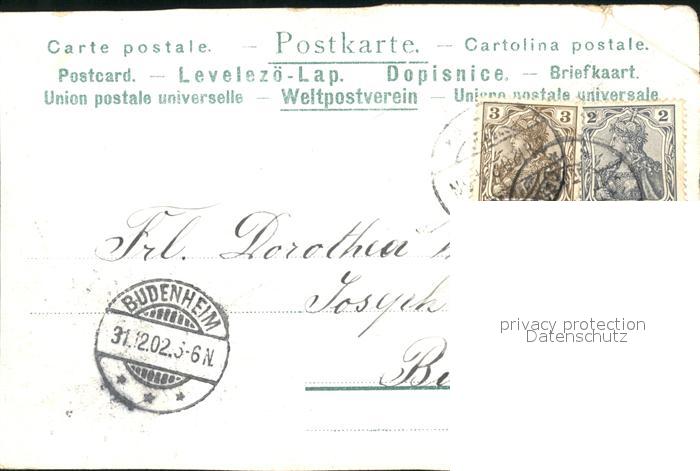 Carte postale. — Postkarte. — Cartolina postale.
Postcard. — Levelező-Lap. Dopisnice. — Briefkaart.
Union postale universelle — Weltpostverein — postale universale
3 3 2 2
Frl. Dorothea
Joseph
BUDENHEIM
31.12.02.5-6N.
privacy protection
Datenschutz